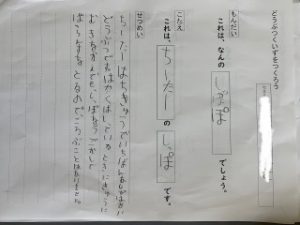 どうぶつくいずをつくろう
もんだい
これは、なんの しっぽ でしょう。
こたえ
これは、ちーたー の しっぽ です。
せつめい
ちーたーはちきゅうでいちばんあしがはやい
どうぶつです。はやくはしっているときにきゅうに
むきをかえても、しっぽをうごかして
ころぶことはありません。